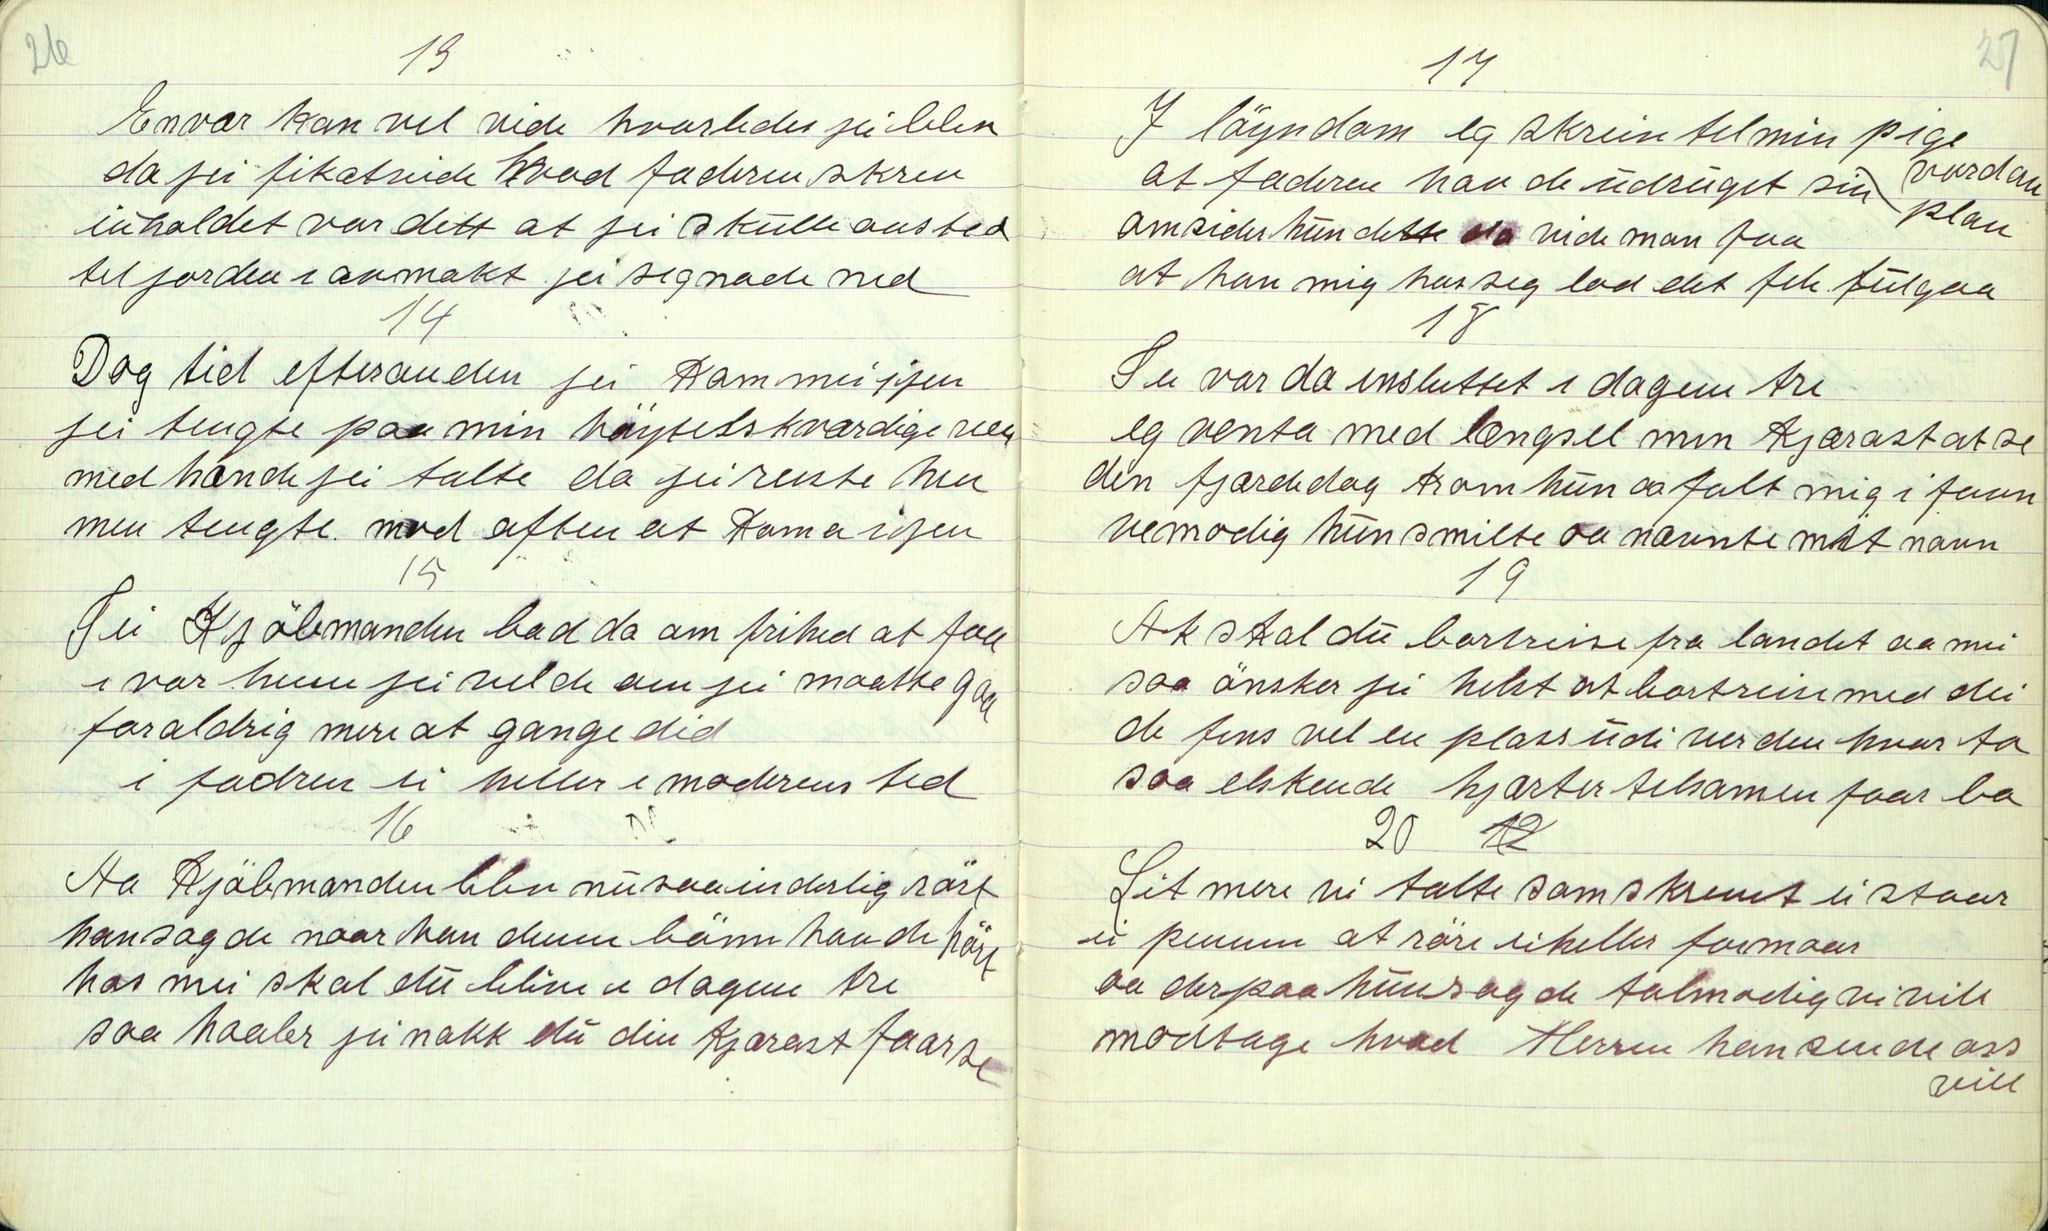 26
13
Envar kan vel vide hvorledes jei blev
da jei fik at vide hvad faderen skrev
inholdet var dett at jei skulle ansted
tel jorden i avmakt jei segnade ned
14
Dog tid efter anden jei kom mei igen
jei tengte paa min höytelskværdige ven
med hande jei talte da jei reiste hen
men tengte mod aften at koma igen
15
Jei Kjöbmanden bad da om frihed at faa
e var henn jei velde om jei maatte gaa
for aldrig mere at gange did
i fadren ei heller e moderens ted
16
Aa Kjöbmanden blev nu saa inderlig rört
han sagde naar han denne bönn havde hört
hos mei skal dü blive e dagene tre
saa haaber jei nokk dü din kjærast faar se
27
17
I löyndom eg skreiv tel min pige
at faderen havde üdrüget sin vordan
plan
omsider hün dette da vide man faa
at han mig hos seg lod det feh fülgaa
18
Jei var da inslüttet i dagene tre
eg venta med længsel min kjærast at se
den fjærde dag kom hün aa falt mig i favn
vemodig hün smilte aa nævnte mit navn
19
Ak skal dü bortreise fra landet aa mei
saa önsker jei helst at bortreise med dei
de fins vel en plass üdi verden hvor to
saa elskende hjærter telsamen faar bo
20 12
Lit mere vi talte som skrevet ei staar
ei pennen at röre ei heller formaar
aa derpaa hün sagde tolmodig vi vill
modtage hvad Herren han sende oss
vill